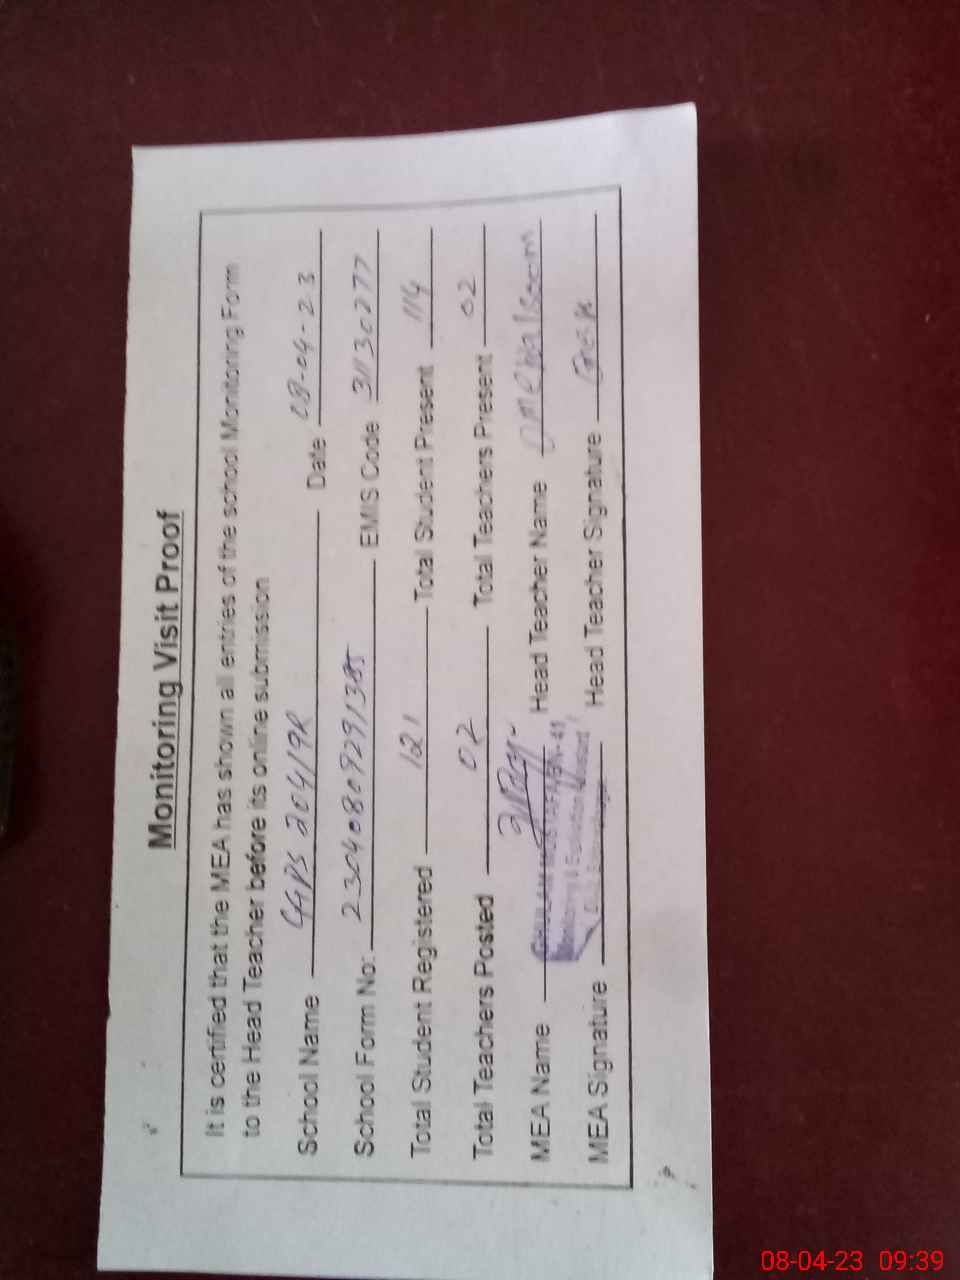 Monitoring Visit Proof
It is certified that the MEA has shown all entries of the school Monitoring Form
to the Head Teacher before its online submission
School Name GGPS 204/9R Date 08-04-23
School Form No: 23040809291385 EMIS Code 31130277
Total Student Registered 121 Total Student Present 114
Total Teachers Posted 02 Total Teachers Present 02
MEA Name GHULAM MUSTAFA Head Teacher Name
Monitoring & Evaluation Assistant
MEA Signature Head Teacher Signature
08-04-23 09:39